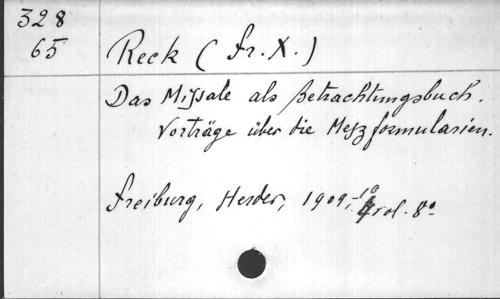 328
65 Reck (Fr. X.)
Das Missale als Betrachtungsbuch.
Vorträge über die Meßformularien.
Freiburg, Herder, 1909-10, 4 vol. 8°